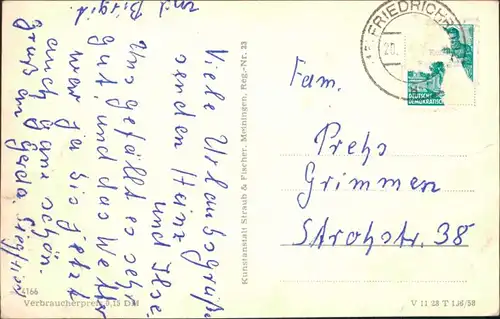 Viele Urlaubsgrüße
senden Heinz
und Ilse.
Uns gefällt es sehr
gut, und das Wetter
war ja bis jetzt
auch ganz schön.
Gruß an Gerda
und Birgit.
Kunstanstalt Straub & Fischer, Meiningen, Reg.-Nr. 33
FRIEDRICH
20.
DEUTSCHE
DEMOKRATISCHE
Fam.
Prehs
Grimmen
Strohstr. 38
4166
Verbraucherpreis 0,15 DM
V 11 28 T 1,16/58